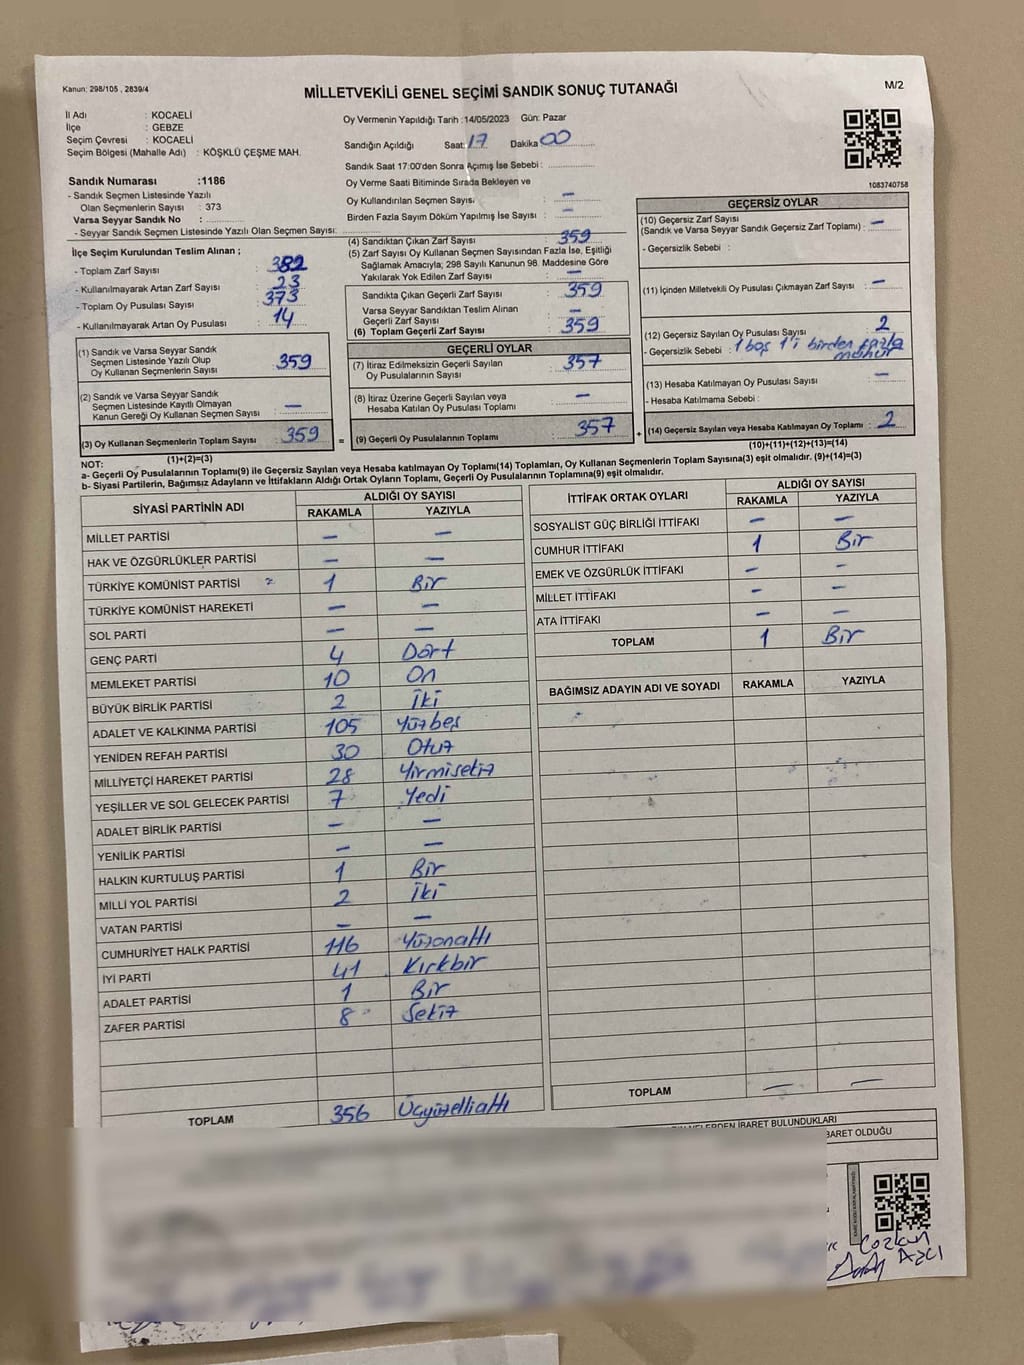 Kanun: 298/105 , 2839/4
MİLLETVEKİLİ GENEL SEÇİMİ SANDIK SONUÇ TUTANAĞI
M/2
İl Adı : KOCAELİ
İlçe : GEBZE
Seçim Çevresi : KOCAELİ
Seçim Bölgesi (Mahalle Adı) : KÖŞKLÜ ÇEŞME MAH.
Sandık Numarası :1186
- Sandık Seçmen Listesinde Yazılı
Olan Seçmenlerin Sayısı : 373
Varsa Seyyar Sandık No :
- Seyyar Sandık Seçmen Listesinde Yazılı Olan Seçmen Sayısı:
Oy Vermenin Yapıldığı Tarih :14/05/2023 Gün: Pazar
Sandığın Açıldığı Saat: 17 Dakika 00
Sandık Saat 17:00'den Sonra Açımış İse Sebebi :
Oy Verme Saati Bitiminde Sırada Bekleyen ve
Oy Kullandırılan Seçmen Sayısı : —
Birden Fazla Sayım Döküm Yapılmış İse Sayısı : —
1083740758
İlçe Seçim Kurulundan Teslim Alınan ;
- Toplam Zarf Sayısı : 382
- Kullanılmayarak Artan Zarf Sayısı : 23
- Toplam Oy Pusulası Sayısı : 373
- Kullanılmayarak Artan Oy Pusulası : 14
(1) Sandık ve Varsa Seyyar Sandık
Seçmen Listesinde Yazılı Olup
Oy Kullanan Seçmenlerin Sayısı : 359
(2) Sandık ve Varsa Seyyar Sandık
Seçmen Listesinde Kayıtlı Olmayan
Kanun Gereği Oy Kullanan Seçmen Sayısı : —
(3) Oy Kullanan Seçmenlerin Toplam Sayısı : 359
(1)+(2)=(3)
(4) Sandıktan Çıkan Zarf Sayısı : 359
(5) Zarf Sayısı Oy Kullanan Seçmen Sayısından Fazla İse, Eşitliği
Sağlamak Amacıyla; 298 Sayılı Kanunun 98. Maddesine Göre
Yakılarak Yok Edilen Zarf Sayısı : —
Sandıkta Çıkan Geçerli Zarf Sayısı : 359
Varsa Seyyar Sandıktan Teslim Alınan
Geçerli Zarf Sayısı : —
(6) Toplam Geçerli Zarf Sayısı : 359
GEÇERLİ OYLAR
(7) İtiraz Edilmeksizin Geçerli Sayılan
Oy Pusulalarının Sayısı : 357
(8) İtiraz Üzerine Geçerli Sayılan veya
Hesaba Katılan Oy Pusulası Toplamı : —
= (9) Geçerli Oy Pusulalarının Toplamı : 357 +
GEÇERSİZ OYLAR
(10) Geçersiz Zarf Sayısı
(Sandık ve Varsa Seyyar Sandık Geçersiz Zarf Toplamı) : —
- Geçersizlik Sebebi :
(11) İçinden Milletvekili Oy Pusulası Çıkmayan Zarf Sayısı : —
(12) Geçersiz Sayılan Oy Pusulası Sayısı : 2
- Geçersizlik Sebebi : 1 boş 1'i birden fazla
mühür
(13) Hesaba Katılmayan Oy Pusulası Sayısı : —
- Hesaba Katılmama Sebebi :
(14) Geçersiz Sayılan veya Hesaba Katılmayan Oy Toplamı : 2
(10)+(11)+(12)+(13)=(14)
NOT:
a- Geçerli Oy Pusulalarının Toplamı(9) ile Geçersiz Sayılan veya Hesaba katılmayan Oy Toplamı(14) Toplamları, Oy Kullanan Seçmenlerin Toplam Sayısına(3) eşit olmalıdır. (9)+(14)=(3)
b- Siyasi Partilerin, Bağımsız Adayların ve İttifakların Aldığı Ortak Oyların Toplamı, Geçerli Oy Pusulalarının Toplamına(9) eşit olmalıdır.
SİYASİ PARTİNİN ADI ALDIĞI OY SAYISI
RAKAMLA YAZIYLA
MİLLET PARTİSİ — —
HAK VE ÖZGÜRLÜKLER PARTİSİ — —
TÜRKİYE KOMÜNİST PARTİSİ 1 Bir
TÜRKİYE KOMÜNİST HAREKETİ — —
SOL PARTİ — —
GENÇ PARTİ 4 Dört
MEMLEKET PARTİSİ 10 On
BÜYÜK BİRLİK PARTİSİ 2 İki
ADALET VE KALKINMA PARTİSİ 105 Yüzbeş
YENİDEN REFAH PARTİSİ 30 Otuz
MİLLİYETÇİ HAREKET PARTİSİ 28 Yirmisekiz
YEŞİLLER VE SOL GELECEK PARTİSİ 7 Yedi
ADALET BİRLİK PARTİSİ — —
YENİLİK PARTİSİ — —
HALKIN KURTULUŞ PARTİSİ 1 Bir
MİLLİ YOL PARTİSİ 2 İki
VATAN PARTİSİ — —
CUMHURİYET HALK PARTİSİ 116 Yüzonaltı
İYİ PARTİ 41 Kırkbir
ADALET PARTİSİ 1 Bir
ZAFER PARTİSİ 8 Sekiz
TOPLAM 356 Üçyüzelliالtı
İTTİFAK ORTAK OYLARI ALDIĞI OY SAYISI
RAKAMLA YAZIYLA
SOSYALİST GÜÇ BİRLİĞİ İTTİFAKI — —
CUMHUR İTTİFAKI 1 Bir
EMEK VE ÖZGÜRLÜK İTTİFAKI — —
MİLLET İTTİFAKI — —
ATA İTTİFAKI — —
TOPLAM 1 Bir
BAĞIMSIZ ADAYIN ADI VE SOYADI RAKAMLA YAZIYLA
TOPLAM — —
İBARET BULUNDUKLARI
BARET OLDUĞU